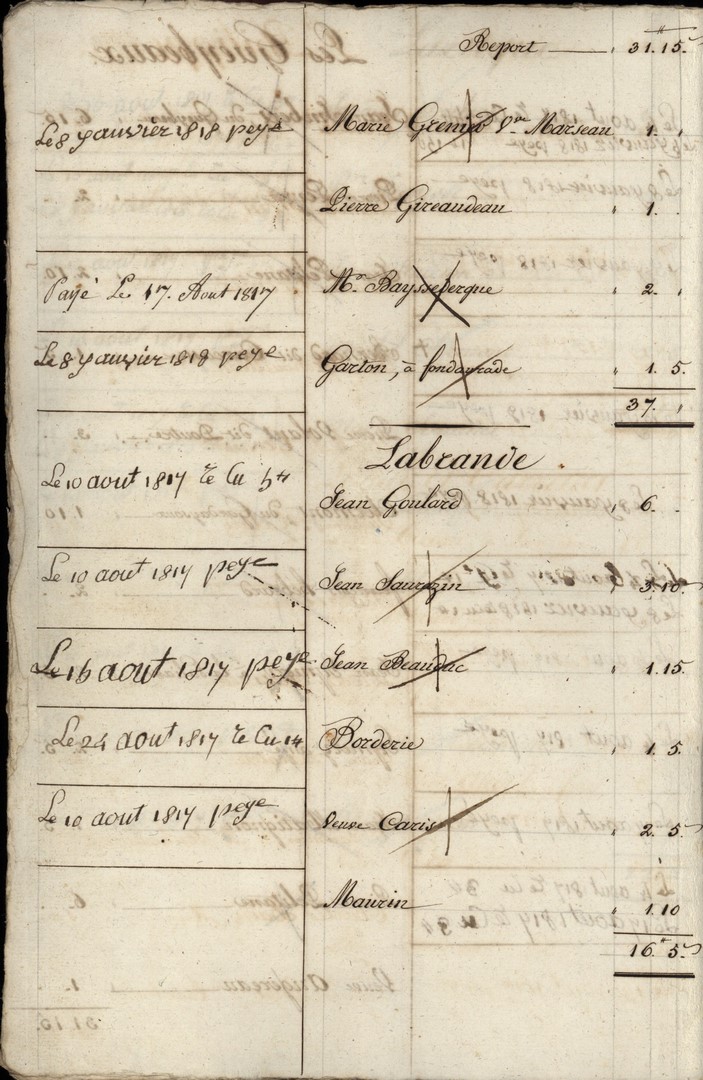 Report 31. 15.
Le 8 yanvier 1818 peye Marie Grenier Vve Marseau " 1. "
Pierre Gireaudeau " 1.
Payé Le 17. Aout 1817 Mr. Baysselergue " 2. "
Le 8 yanvier 1818 peye Garion, à fondaurade " 1. 5
37. "
Labrande.
Le 10 aout 1817 re Cu 5tt Jean Goulard " 6.
Le 10 aout 1817 peye Jean Saurazin 3. 10.
Le 16 aout 1817 peye Jean Beaudac " 1. 15
Le 24 aout 1817 re Cu 14 Borderie " 1. 5
Le 10 aout 1817 peye Veuve Caris " 2. 5
Maurin " 1. 10
16. 5